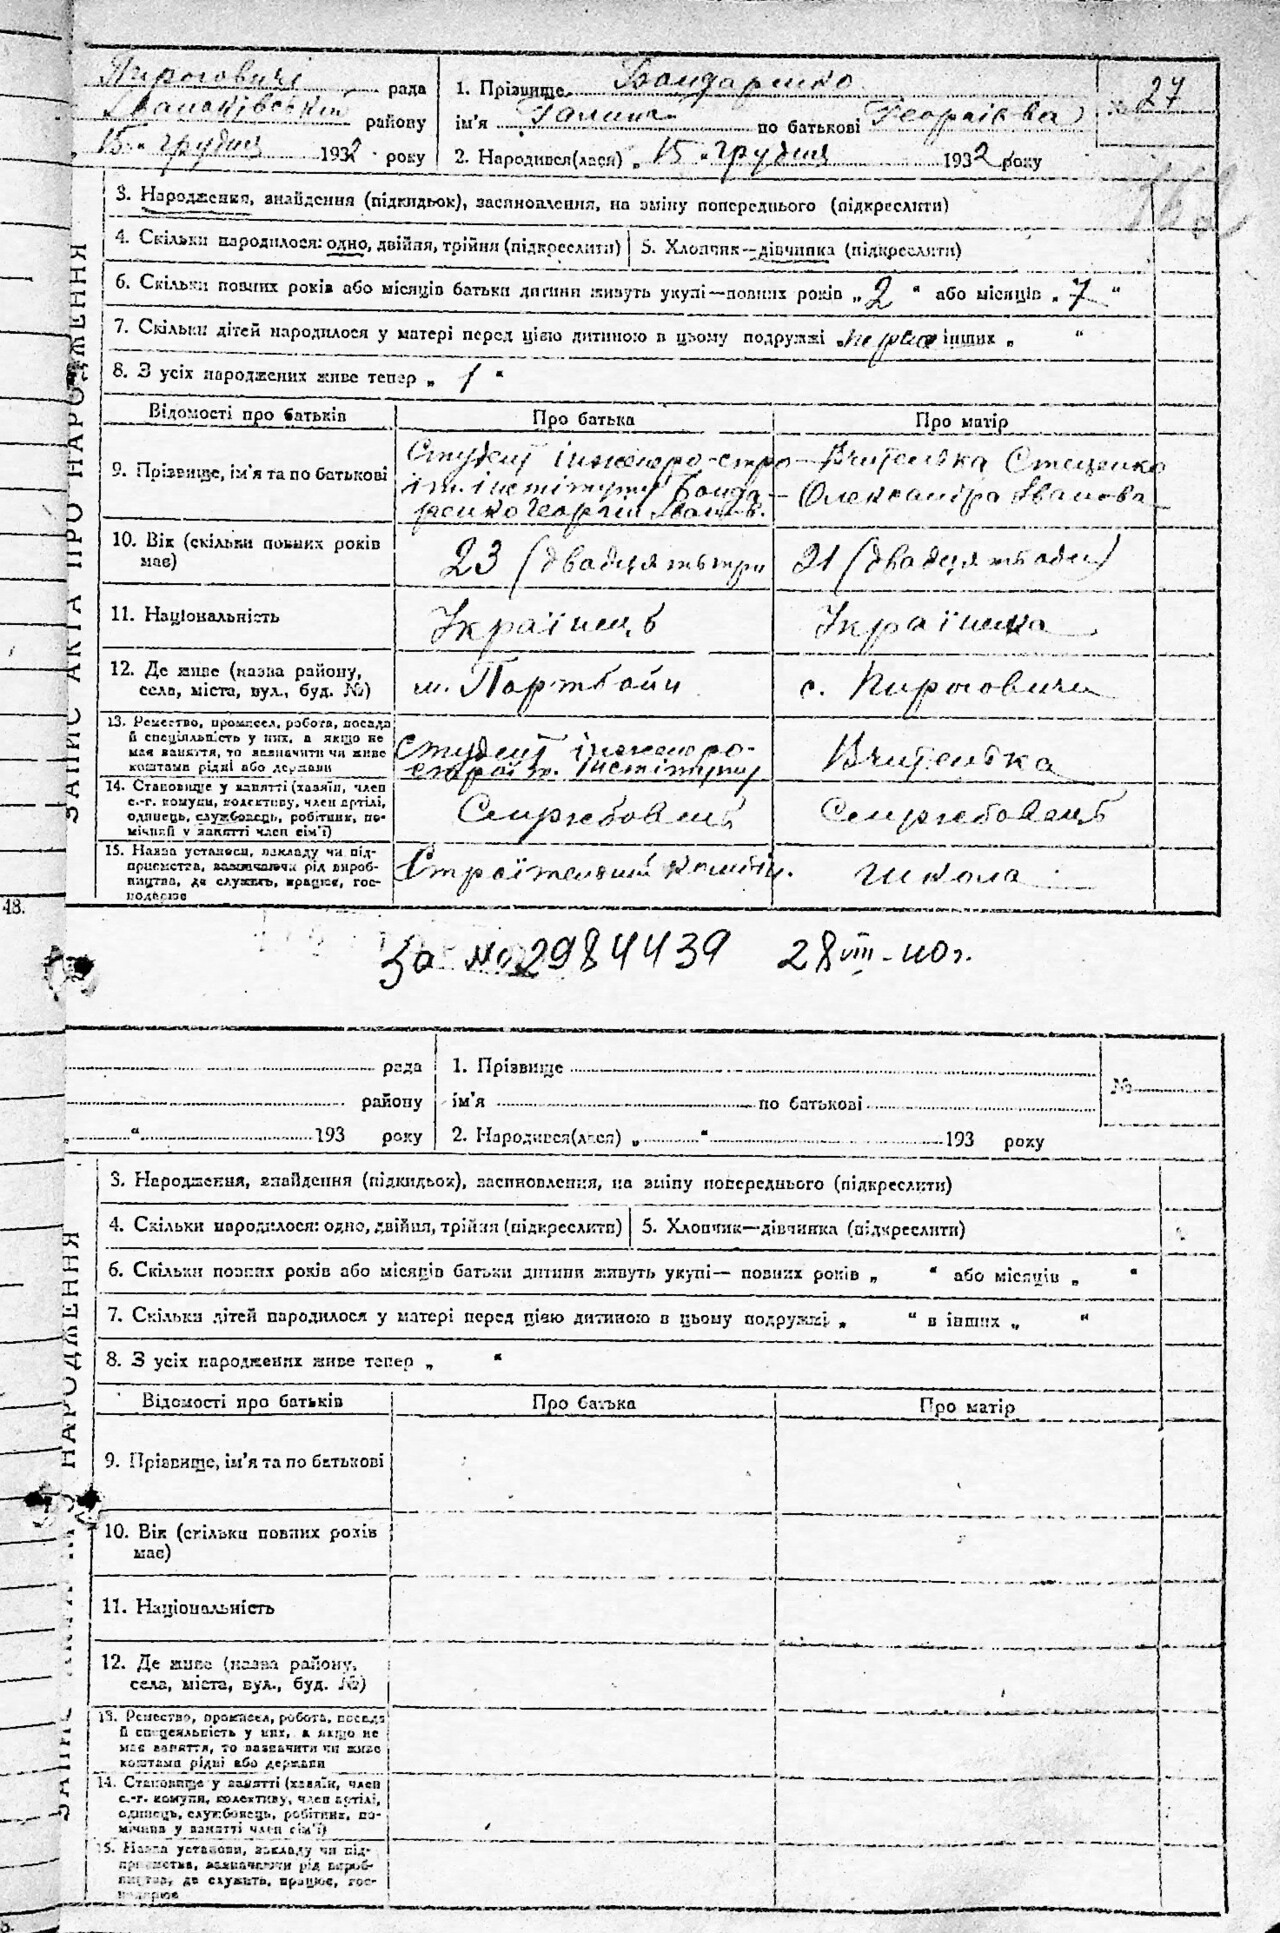 Пироговичі рада
Іванківський району
15 „ грудня 1932 року
1. Прізвище Бондаренко
ім'я Галина по батькові Георгієва
2. Народився(лася) „ 15 „ грудня 1932 року
№ 27
ЗАПИС АКТА ПРО НАРОДЖЕННЯ
3. Народження, знайдення (підкидьок), засиновлення, на зміну попереднього (підкреслити)
4. Скільки народилося: одно, двійня, трійня (підкреслити)
5. Хлопчик—дівчинка (підкреслити)
6. Скільки повних років або місяців батьки дитини живуть укупі—повних років „ 2 “ або місяців „ 7 “
7. Скільки дітей народилося у матері перед цією дитиною в цьому подружжі „ перша інших „ “
8. З усіх народжених живе тепер „ 1 “
Відомості про батьків
Про батька
Про матір
9. Прізвище, ім'я та по батькові
Студент інженеро-строїт. інституту Бонда-
ренко Георгій Іванов.
Вчителька Стеценко
Олександра Іванова
10. Вік (скільки повних років
має)
23 (двадцять три
21 (двадцять один)
11. Національність
Українець
Українка
12. Де живе (назва району,
села, міста, вул., буд. №)
м.
с. Пироговичи
13. Ремество, промисел, робота, посада
й спеціяльність у них, а якщо не
має заняття, то зазначити чи живе
коштами рідні або держави
Студент інженеро-
строїт. інституту
Вчителька
14. Становище у занятті (хазяїн, член
с.-г. комуни, колективу, член артілі,
одинець, службовець, робітник, по-
мічний у занятті член сім'ї)
Службовець
Службовець
15. Назва установи, закладу чи під-
приємства, зазначаючи рід вироб-
ництва, де служить, працює, гос-
подарює
школа
48.
За № 2984439 28 VIII - 40 г.
рада
району
„ “ 193 року
1. Прізвище
ім'я по батькові
2. Народився(лася) „ “ 193 року
№
НАРОДЖЕННЯ
3. Народження, знайдення (підкидьок), засиновлення, на зміну попереднього (підкреслити)
4. Скільки народилося: одно, двійня, трійня (підкреслити)
5. Хлопчик—дівчинка (підкреслити)
6. Скільки повних років або місяців батьки дитини живуть укупі— повних років „ “ або місяців „ “
7. Скільки дітей народилося у матері перед цією дитиною в цьому подружжі „ “ в інших „ “
8. З усіх народжених живе тепер „ “
Відомості про батьків
Про батька
Про матір
9. Прізвище, ім'я та по батькові
10. Вік (скільки повних років
має)
11. Національність
12. Де живе (назва району,
села, міста, вул., буд. №)
13. Ремество, промисел, робота, посада
й спецеяльність у них, а якщо не
має заняття, то зазначити чи живе
коштами рідні або держави
14. Становище у занятті (хазяїн, член
с.-г. комуни, колективу, член артілі,
одинець, службовець, робітник, по-
мічний у занятті член сім'ї)
15. Назва установи, закладу чи під-
приємства, зазначаючи рід вироб-
ництва, де служить, працює, гос-
подарює